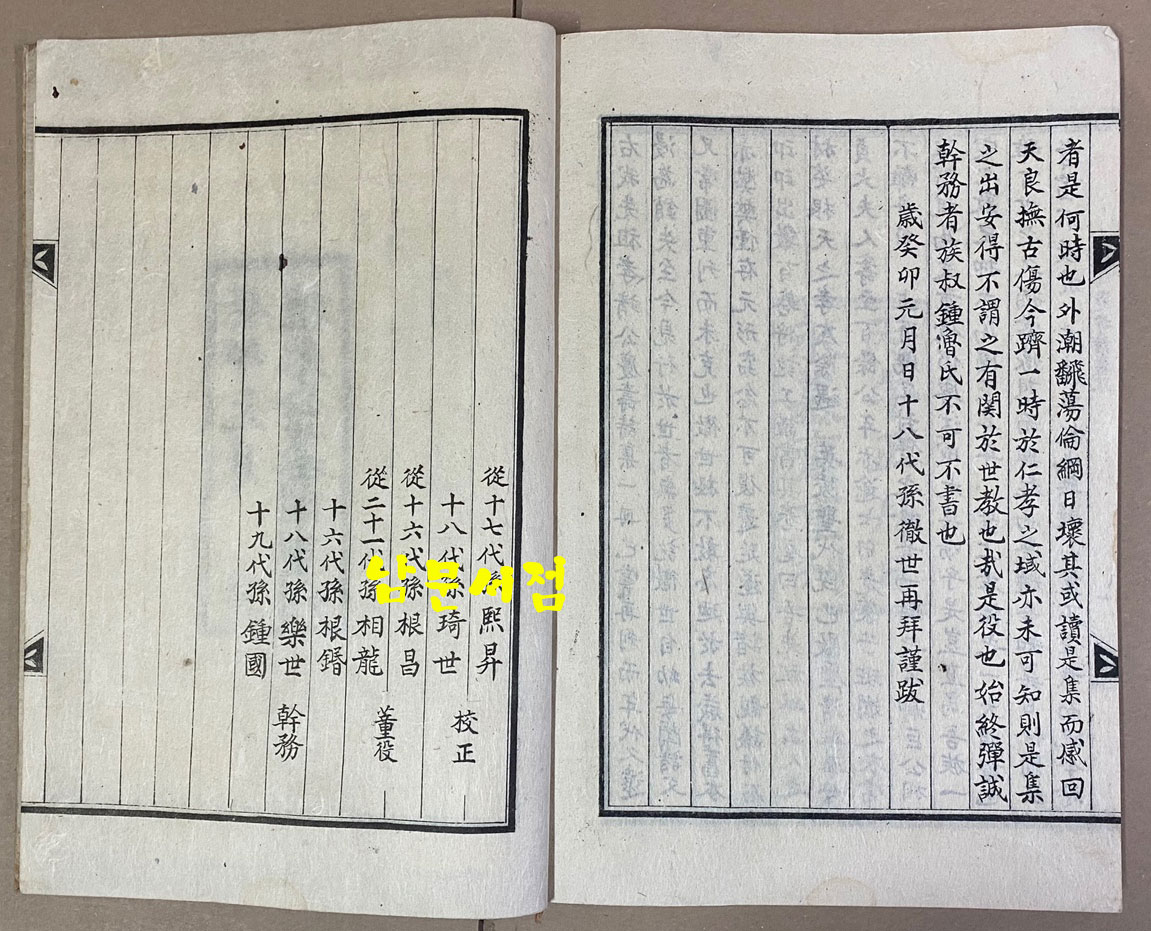 者是何時也外潮飜蕩倫綱日壞其或讀是集而感回
天良撫古傷今躋一時於仁孝之域亦未可知則是集
之出安得不謂之有関於世教也㢤是役也始終殫誠
幹務者族叔鍾魯氏不可不書也
歲癸卯元月日十八代孫徹世再拜謹跋
從十七代孫熙昇
十八代孫琦世 校正
從十六代孫根昌
從二十一代孫相龍 董役
十六代孫根鍲
十八代孫樂世 幹務
十九代孫鍾國
삼문서점